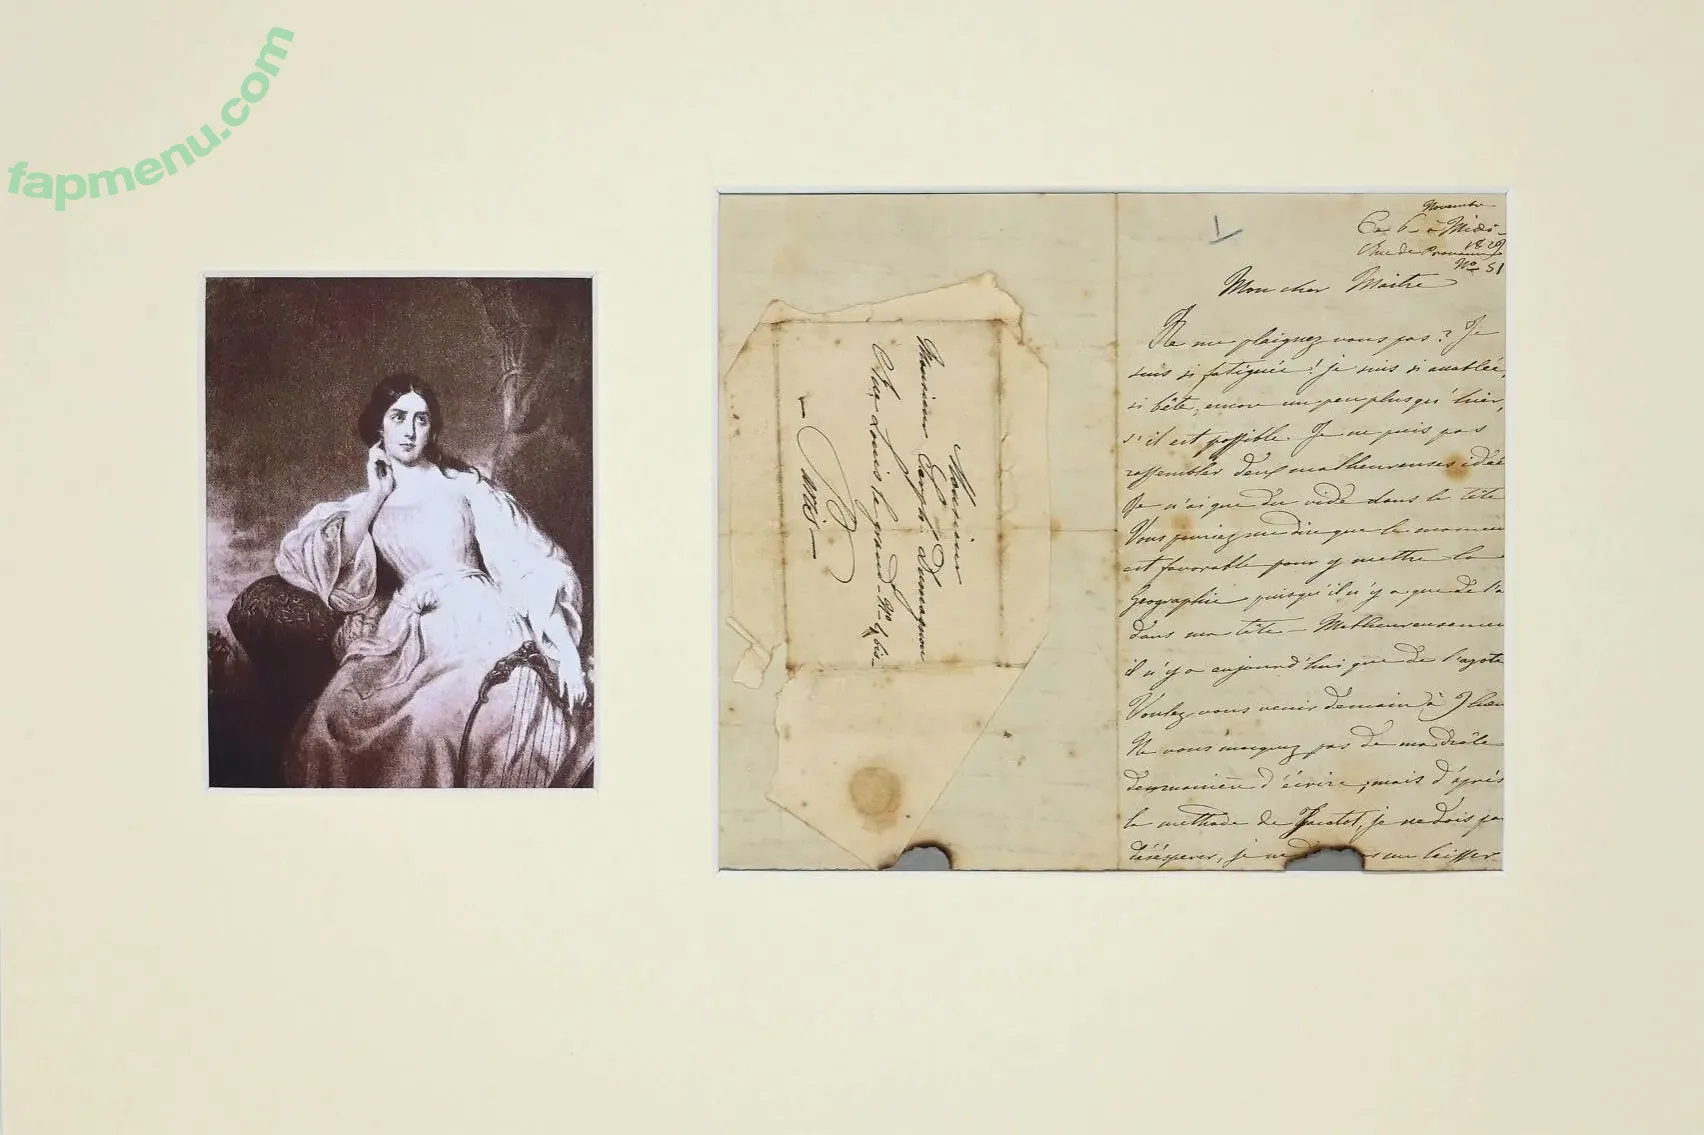 fapmenu.com
1
Novembre
Ce 6 à Midi
1829
Rue de Provence
No 51
Mon cher Maitre
Ne me plaignez vous pas? Je
suis si fatiguée! je suis si accablée,
si bête, encore un peu plus qu'hier,
s'il est possible. Je ne puis pas
rassembler deux malheureuses idées
Je n'ai que du vide dans la tête
Vous pourriez me dire que le moment
est favorable pour y mettre la
géographie puisqu'il n'y a que de l'a
dans ma tête - Malheureusement
il n'y a aujourd'hui que de l'azote
Voulez vous venir demain à
Ne vous moquez pas de ma drôle
de manière d'écrire, mais d'après
la methode de Jacotot, je ne dois pas
désespérer, je ne laisser
Monsieur
Monsieur
Rue Louis le grand - No bis
Paris